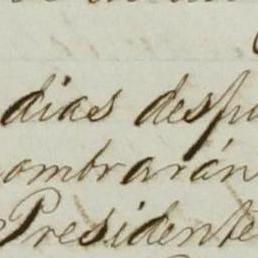 dias desp
ombrarán
Presidente